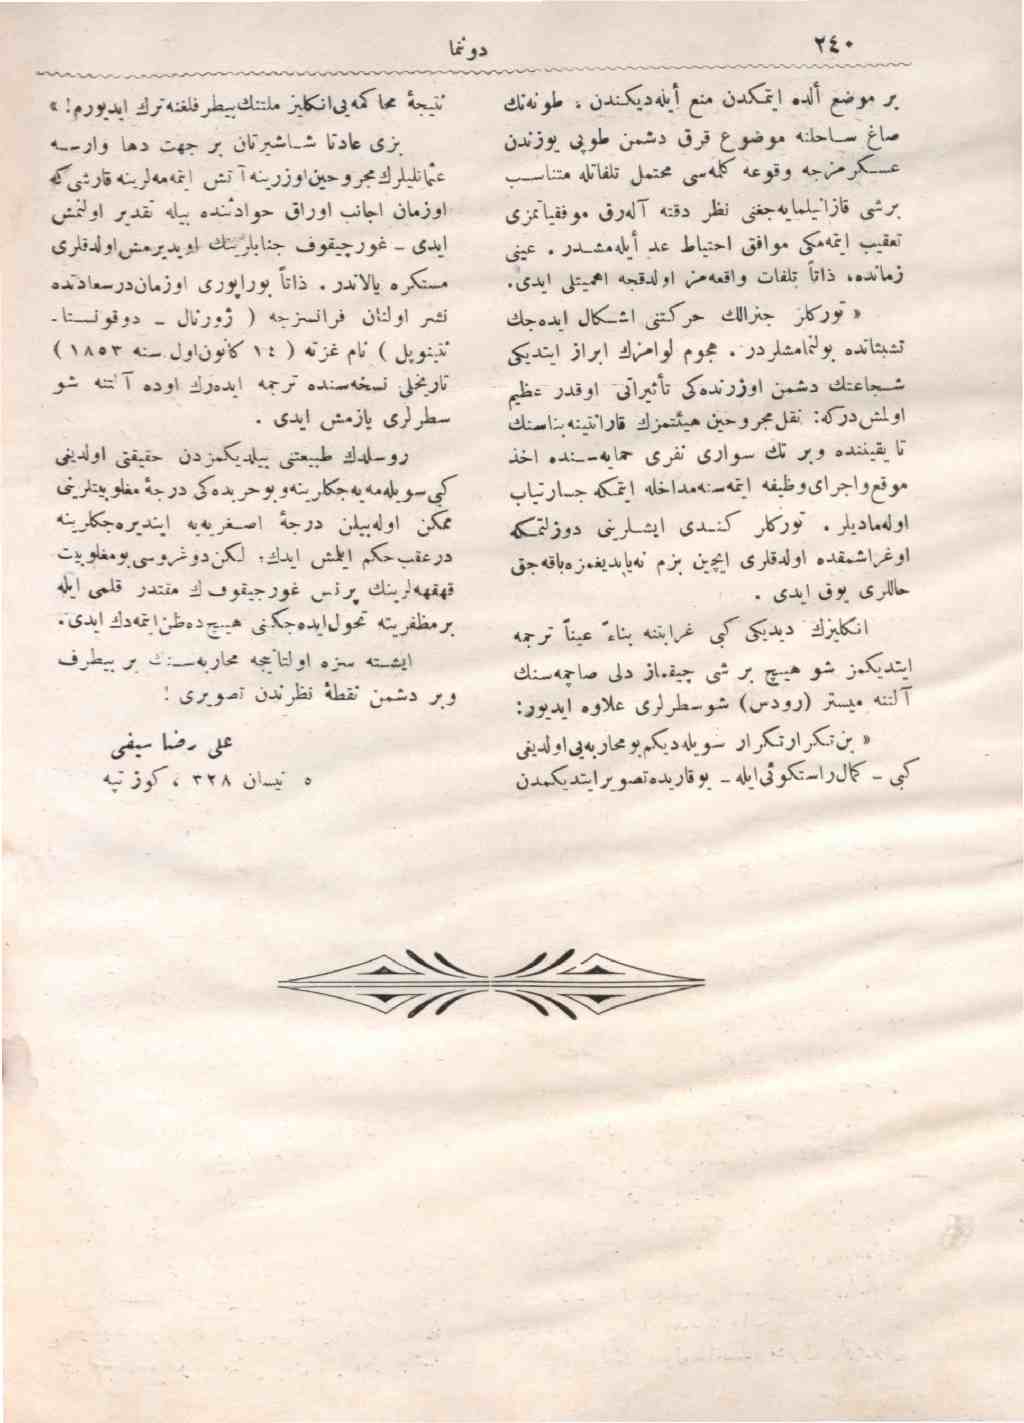 ٢٤٠
دوننما
بر موضع ألده ایتمكدن منع أیله‌دیكندن ، طونه‌نك
صاغ ساحلنه موضوع قرق دشمن طوپی یوزندن
عسكرمزجه وقوعه كلمه‌سی محتمل تلفاتله متناسب
برشی قازانیلمایه‌جغنی نظر دقته آله‌رق موفقیاتمزی
تعقیب ایتمه‌مكی موافق احتیاط عد أیله‌مشدر . عینی
زمانده، ذاتاً تلفات واقعه‌مز اولدقجه اهمیتلی ایدی.
« توركلر جنرالك حركتنی اشكال ایده‌جك
تشبثاتده بولنمامشلردر . هجوم لوامزك ابراز ایتدیكی
شجاعتك دشمن اوزرنده‌كی تأثیراتی اوقدر عظیم
اولمش‌دركه: نقل مجروحین هیئتمزك قارانتینه بناسنك
تا یقیننده وبر تك سواری نفری حمایه‌سنده اخذ
موقع واجرای وظیفه ایتمه‌سنه مداخله ایتمكه جسارتیاب
اوله‌مادیلر . توركلر كندی ایشلرینی دوزلتمكه
اوغراشمقده اولدقلری ایچین بزم نه‌یاپدیغمزه باقه‌جق
حاللری یوق ایدی .
انكلیزك دیدیكی كبی غرابتنه بناءً عیناً ترجمه
ایتدیكمز شو هیچ بر شی چیقماز دلی صاچمه‌سنك
آلتنه میستر (رودس) شو سطرلری علاوه ایدیور:
« بن تكرار تكرار سویله‌دیكم بو محاربه‌یی اولدیغی
كبی ـ كمال راستكوئی ایله ـ یوقاریده تصویر ایتدیكمدن
نتیجهٔ محاكمه‌یی انكلیز ملتنك بیطرفلغنه ترك ایدیورم! »
بزی عادتا شاشیرتان بر جهت دها وارسه
عثمانلیلرك مجروحین اوزرینه آتش ایتمه‌مه‌لرینه قارشی كه
اوزمان اجانب اوراق حوادثنده بیله تقدیر اولنمش
ایدی ـ غورچیقوف جنابلرینك اویدیرمش اولدقلری
مستكره یالاندر . ذاتاً بوراپوری اوزمان درسعادتده
نشر اولنان فرانسزجه ( ژورنال ـ دوقونستا-
نتینوپل ) نام غزته ( ١٤ كانون اول سنه ١٨٥٣ )
تاریخلی نسخه‌سنده ترجمه ایده‌رك اوده آلتنه شو
سطرلری یازمش ایدی .
روسلرك طبیعتنی بیلدیكمزدن حقیقتی اولدیغی
كبی سویله‌مه‌یه‌جكلرینه و بو حربده‌كی درجهٔ مغلوبیتلرینی
ممكن اوله‌بیلن درجهٔ اصغریه‌یه ایندیره‌جكلرینه
درعقب حكم ایلمش ایدك؛ لكن دوغروسی بو مغلوبیت
قهقهه‌لرینك پرنس غورچیقوفك مقتدر قلمی ایله
بر مظفریته تحول ایده‌جكنی هیچ ده ظن ایتمه‌دك ایدی.
ایشته سزه اولتانیچه محاربه‌سنك بر بیطرف
وبر دشمن نقطهٔ نظرندن تصویری !
علی رضا سیفی
٥ نیسان ٣٢٨ ، كوز تپه